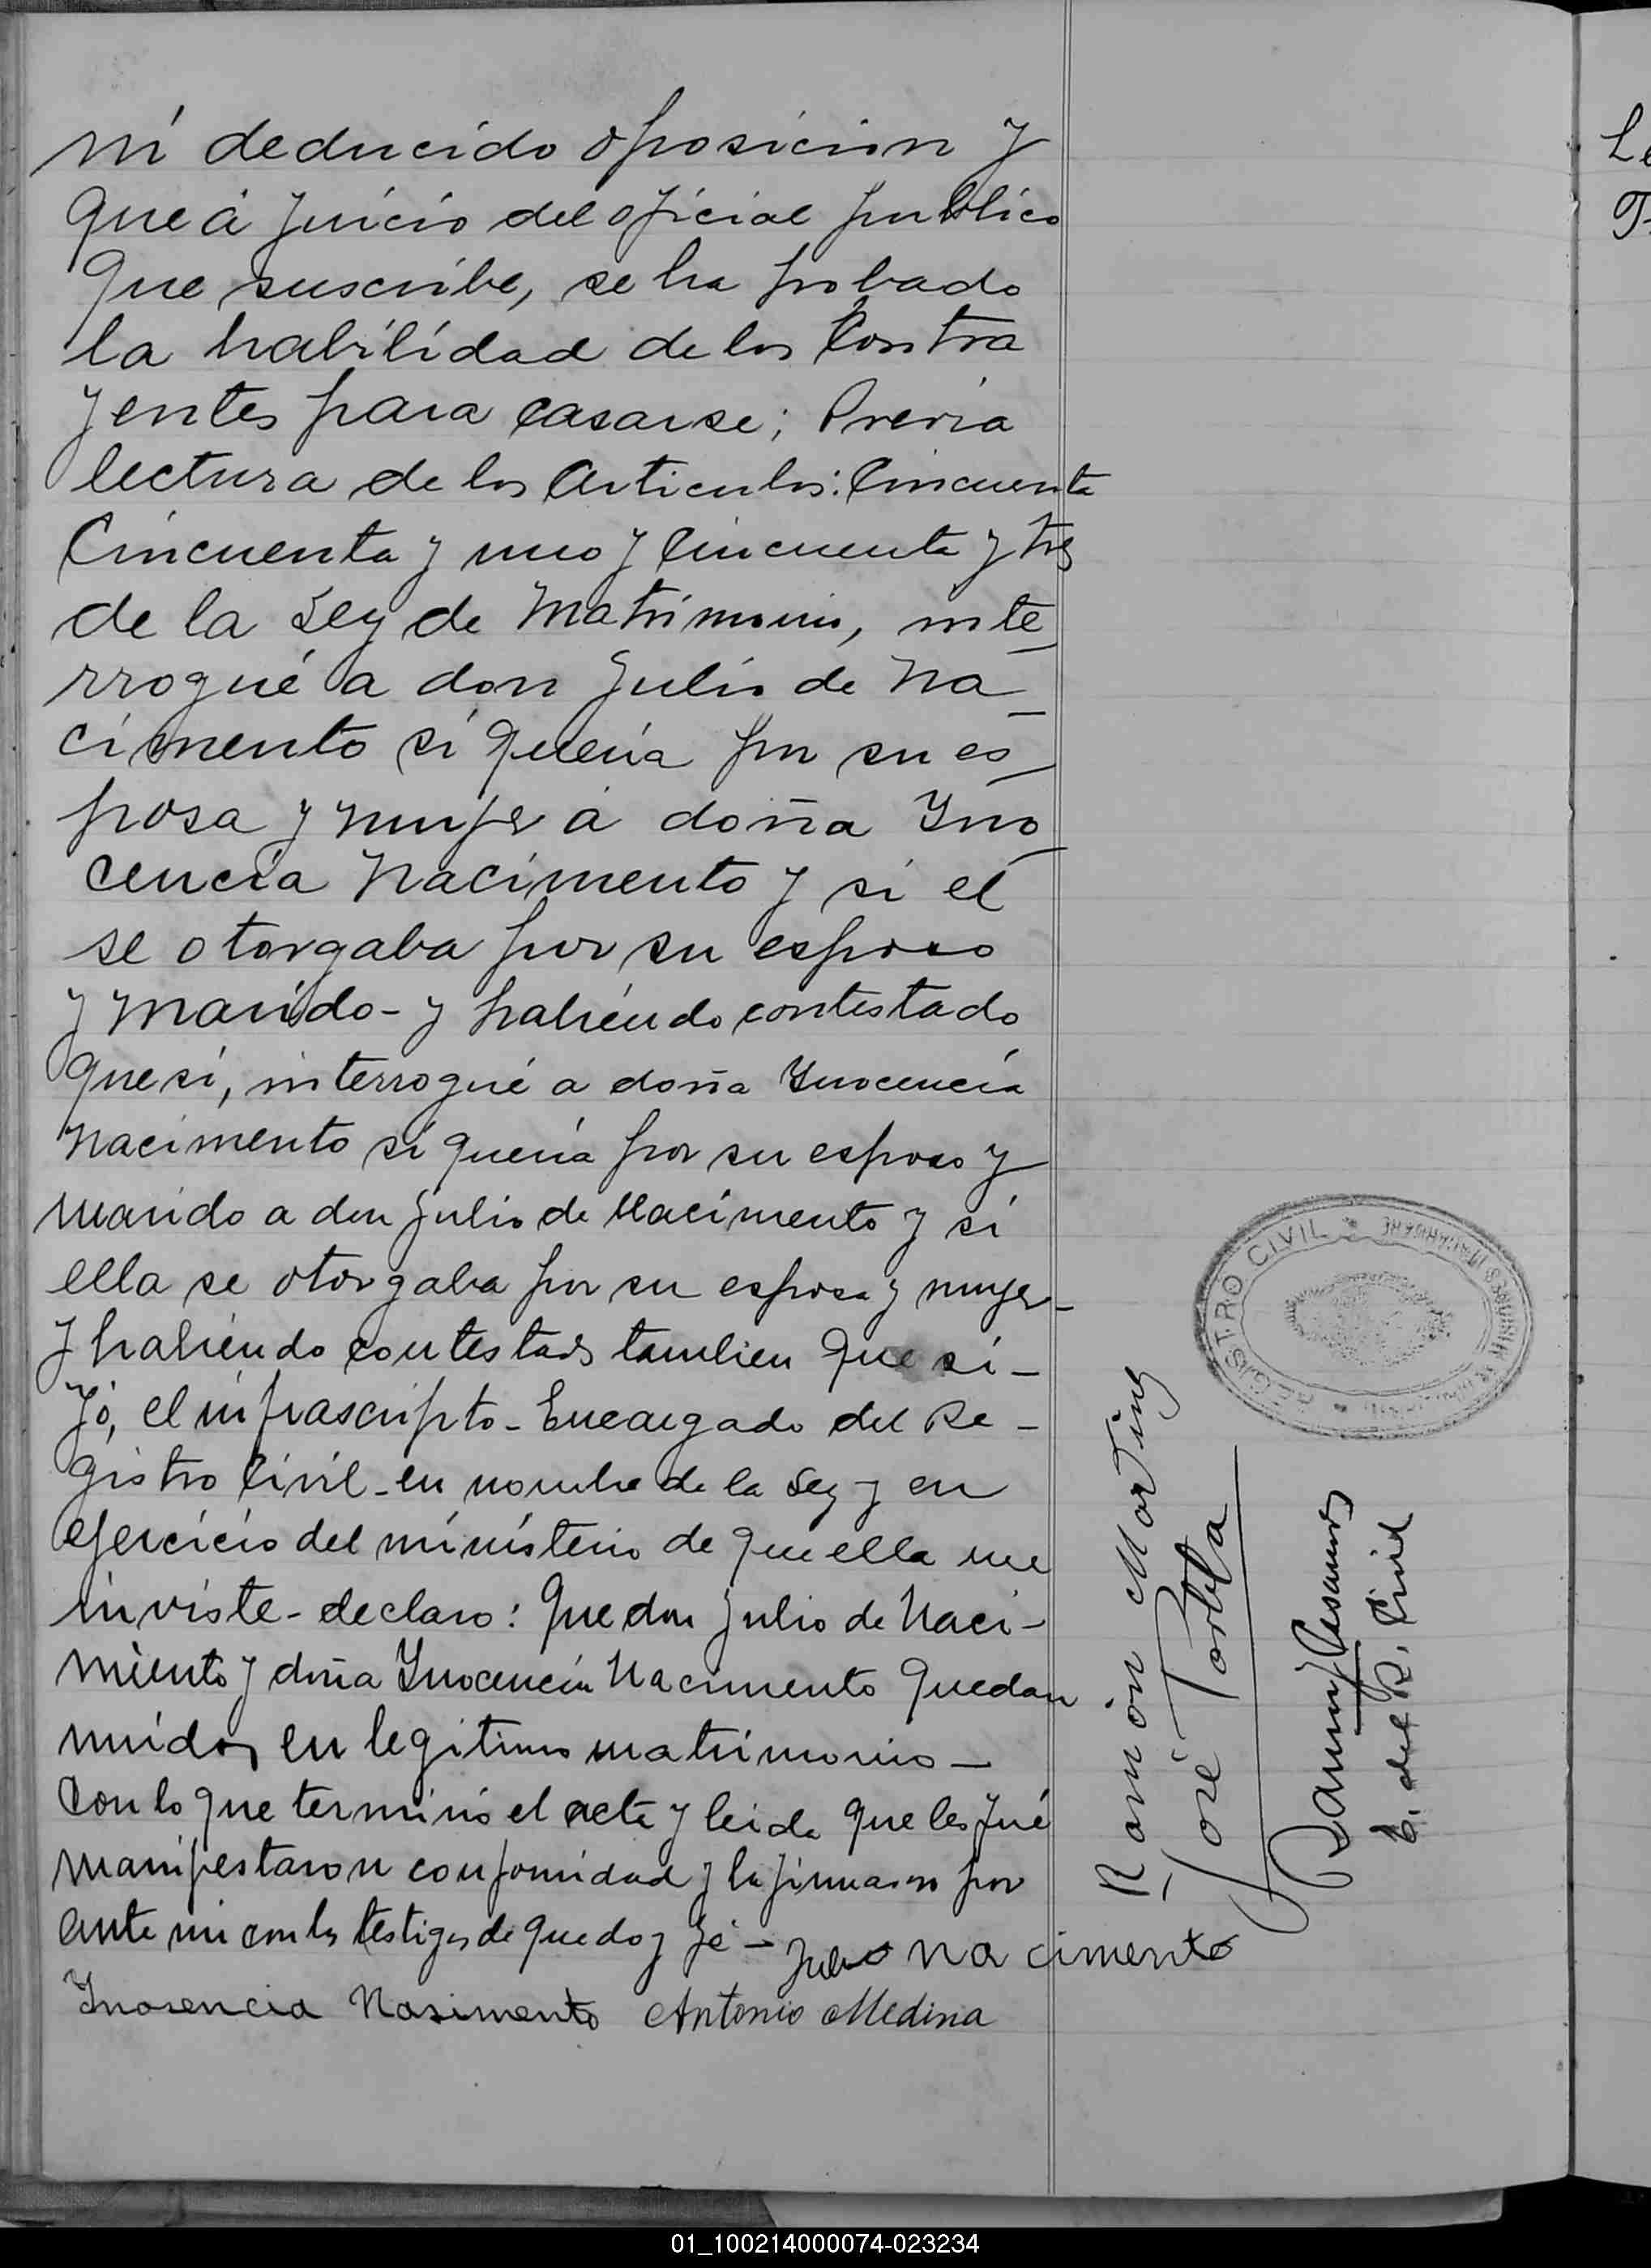 ni deducido oposicion y
que á juicio del oficial publico
que suscribe, se ha probado
la habilidad de los Contra
yentes para casarse; Previa
lectura de los Articulos: Cincuenta
Cincuenta y uno y Cincuenta y tres
de la Ley de Matrimonio, inte
rrogué a don Julio de Na_
cimento si queria por su es
posa y mujer á doña Ino
cencia Nacimento y si él
se otorgaba por su esposo
y marido - y habiendo contestado
que si, interrogué a doña Inocencia
Nacimento si queria por su esposo y
marido a don Julio de Nacimento y si
ella se otorgaba por su esposa y mujer -
y habiendo contestado tambien que si -
Yó, el infrascripto - Encargado del Re -
gistro Civil - en nombre de la Ley y en
ejercicio del ministerio de que ella me
inviste - declaro: Que don Julio de Naci -
miento y doña Inocencia Nacimento quedan
unidos en legitimo matrimonio -
Con lo que terminó el acta y leida que les fué
manifestaron conformidad y la firmaron por
ante mi con los testigos de que doy fé -
Julio Nacimento
Inosencia Nasimento Antonio Medina
Ramón Martinez
José Portela
E. del R. Civil
REGISTRO CIVIL
Le
01_100214000074-023234